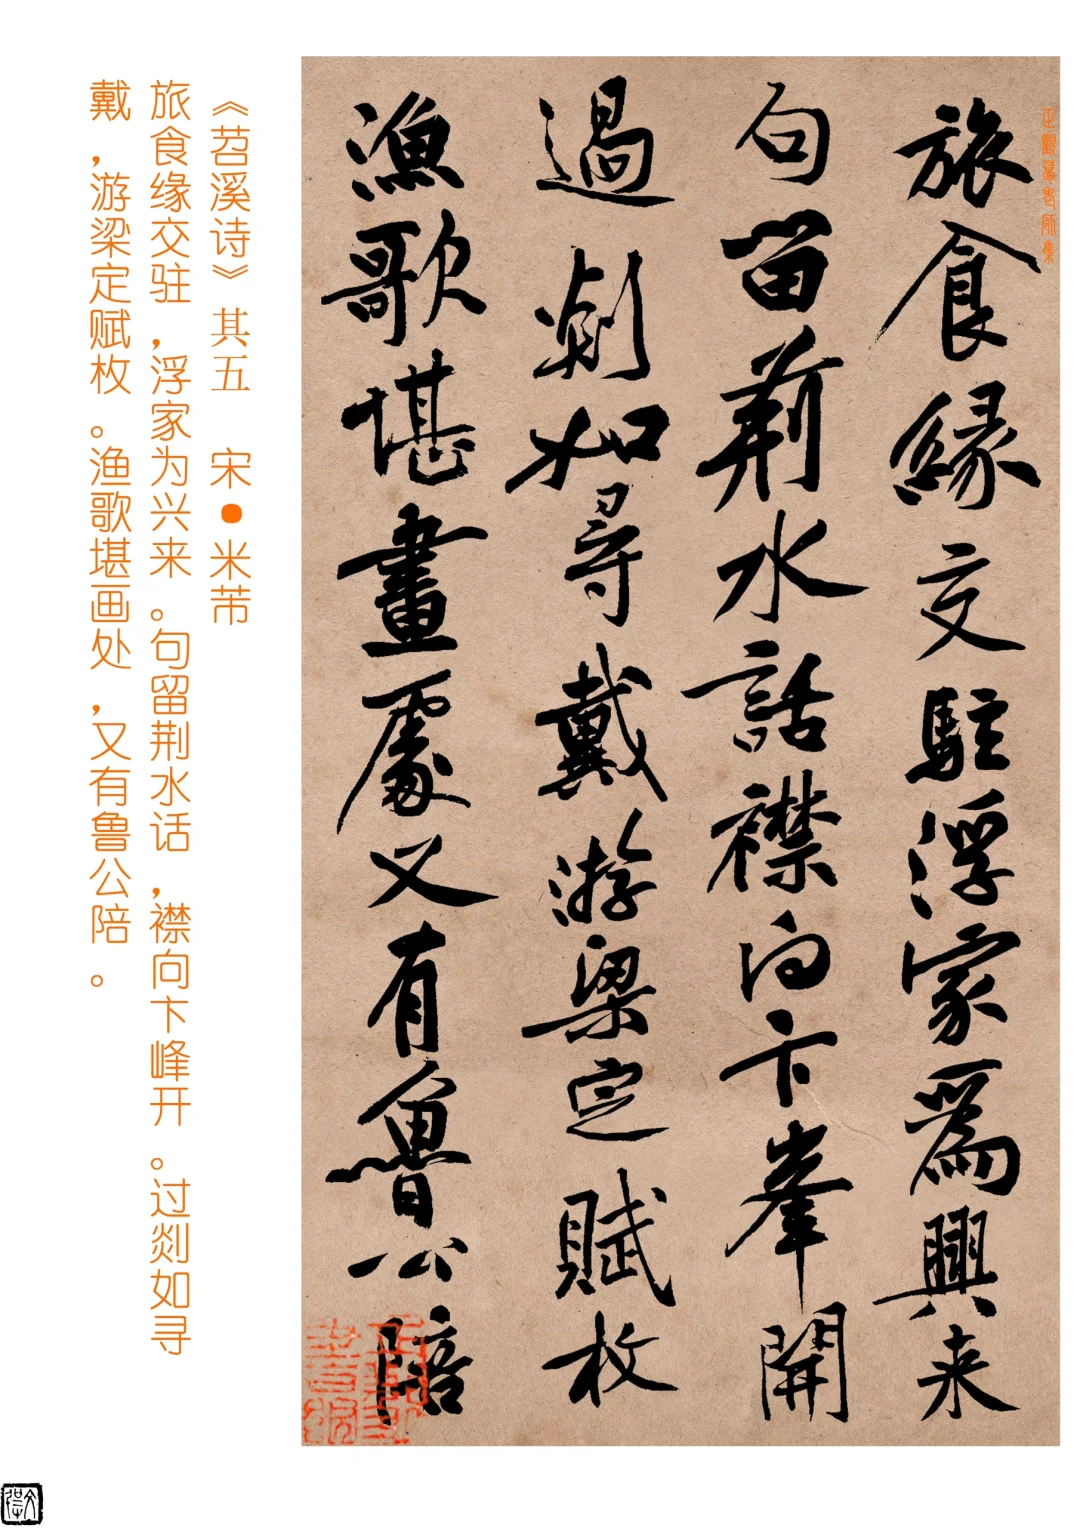 旅食縁交駐浮家爲興来
句留荊水話襟向卞峯開
過剡如尋戴游梁定賦枚
漁歌堪畫處又有魯公陪
《苕溪诗》其五 宋●米芾
旅食缘交驻，浮家为兴来。句留荆水话，襟向卞峰开。过剡如寻
戴，游梁定赋枚。渔歌堪画处，又有鲁公陪。